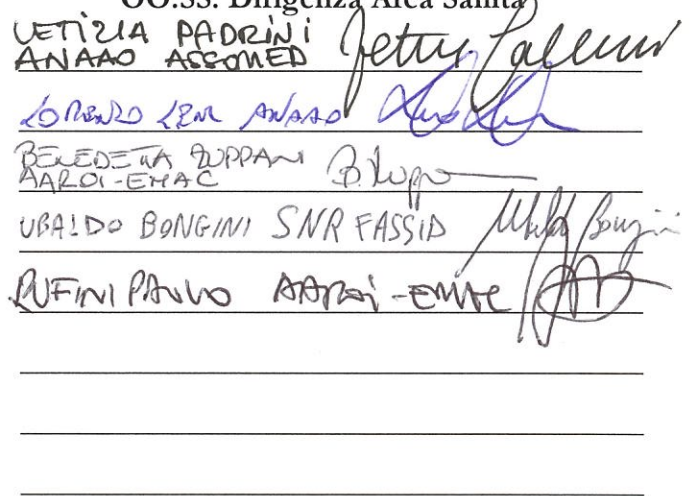 OO.SS. Dirigenza Area Sanità
LETIZIA PADRINI
ANAAO ASSOMED
LORENZO ANAAO
BENEDETTA
AAROI-EMAC B.
UBALDO BONGINI SNR FASSID Ubaldo Bongini
RUFINI PAOLO AAROI-EMAC